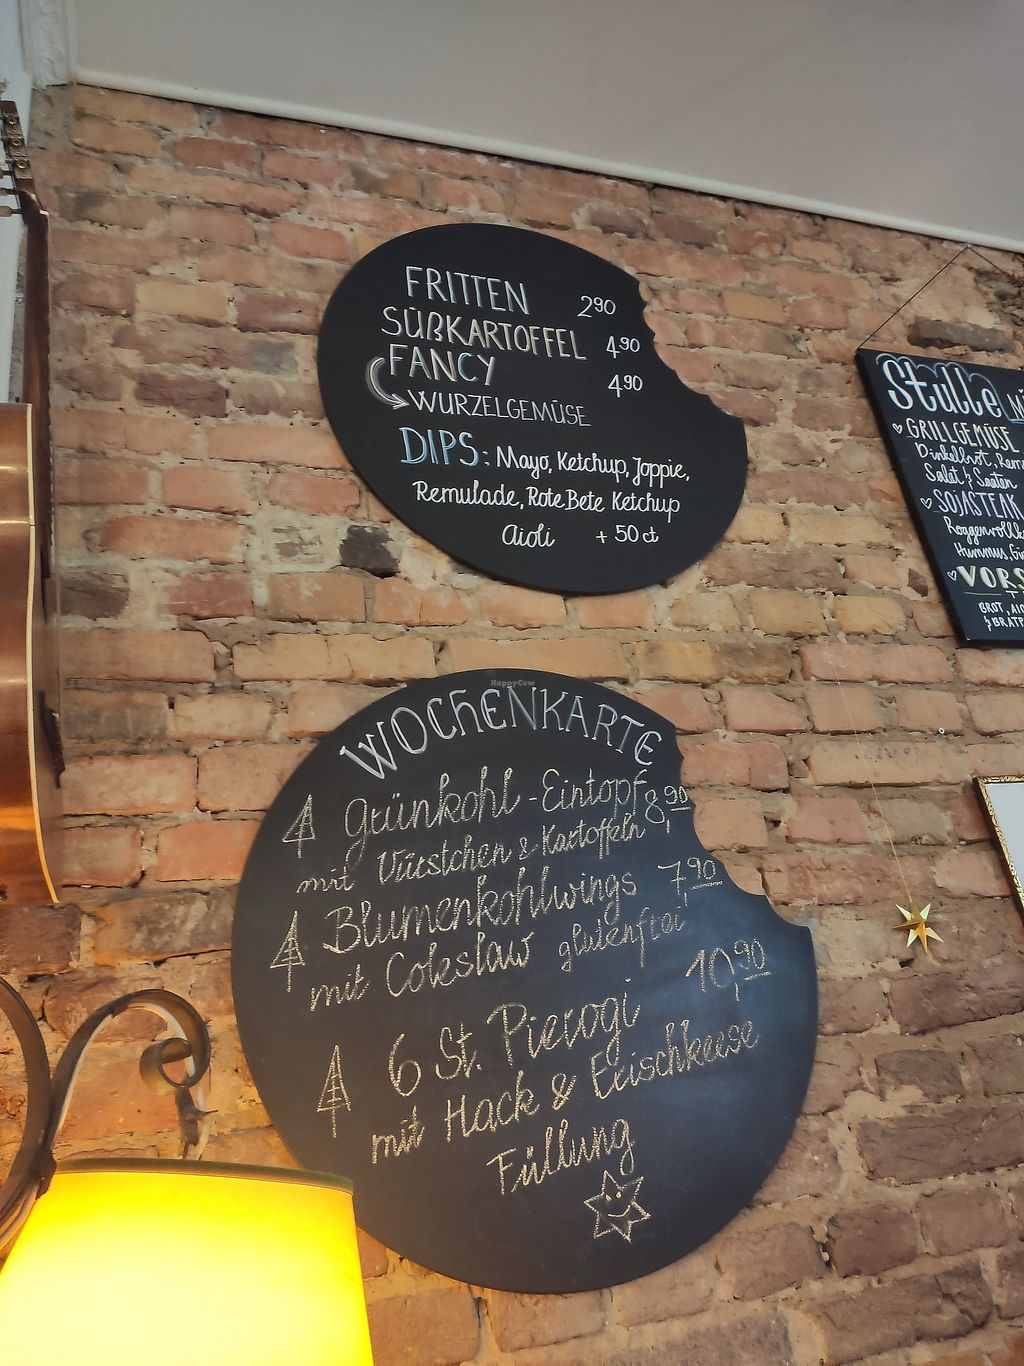 FRITTEN 2 90
SÜßKARTOFFEL 4 90
FANCY 4 90
WURZELGEMÜSE
DIPS: Mayo, Ketchup, Joppie,
Remulade, Rote Bete Ketchup
Aioli + 50 ct
HappyCow
WOCHENKARTE
Grünkohl-Eintopf 8,90
mit Würstchen & Kartoffeln
Blumenkohlwings 7,90
mit Coleslaw glutenfrei
6 St. Pierogi 10,90
mit Hack & Frischkeese
Füllung
Stulle
GRILLGEMÜSE
Dinkelbrot,
Salat & Saaten
SOJASTEAK
Hummus,
BROT,